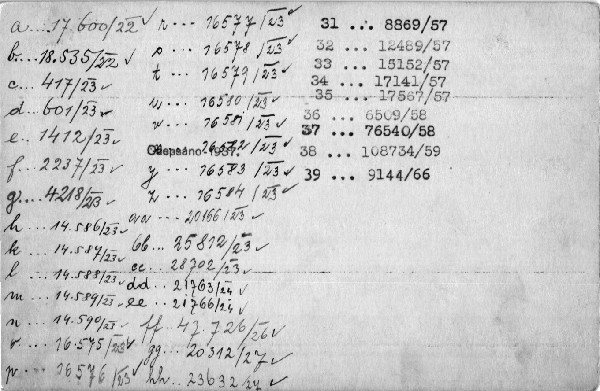 a...17.600/22 ✓
b..18.535/22 ✓
c... 417/23 ✓
d... 601/23 ✓
e.. 1412/23 ✓
f... 2237/23 ✓
g...4218/23 ✓
h .. 14.586/23 ✓
k ... 14.587/23 ✓
l ... 14.588/23 ✓
m ... 14.589/23 ✓
n ... 14.590/23 ✓
... 16.575/23 ✓
p... 16576/23 ✓
r ... 16577/23 ✓
s ... 16578/23 ✓
t ... 16579/23 ✓
u ... 16580/23 ✓
v ... 16581/23 ✓
16582/23 ✓
y ... 16583/23 ✓
z ... 16584/23 ✓
aa ... 20166/23 ✓
bb... 25812/23 ✓
cc... 28702/23 ✓
dd.. 21763/24 ✓
ee ... 21766/24 ✓
ff. 47.726/26 ✓
gg... 20312/27 ✓
hh.. 23632/27 ✓
31 ... 8869/57
32 ... 12489/57
33 ... 15152/57
34 ... 17141/57
35 ... 17567/57
36 ... 6509/58
37 ... 76540/58
38 ... 108734/59
39 ... 9144/66